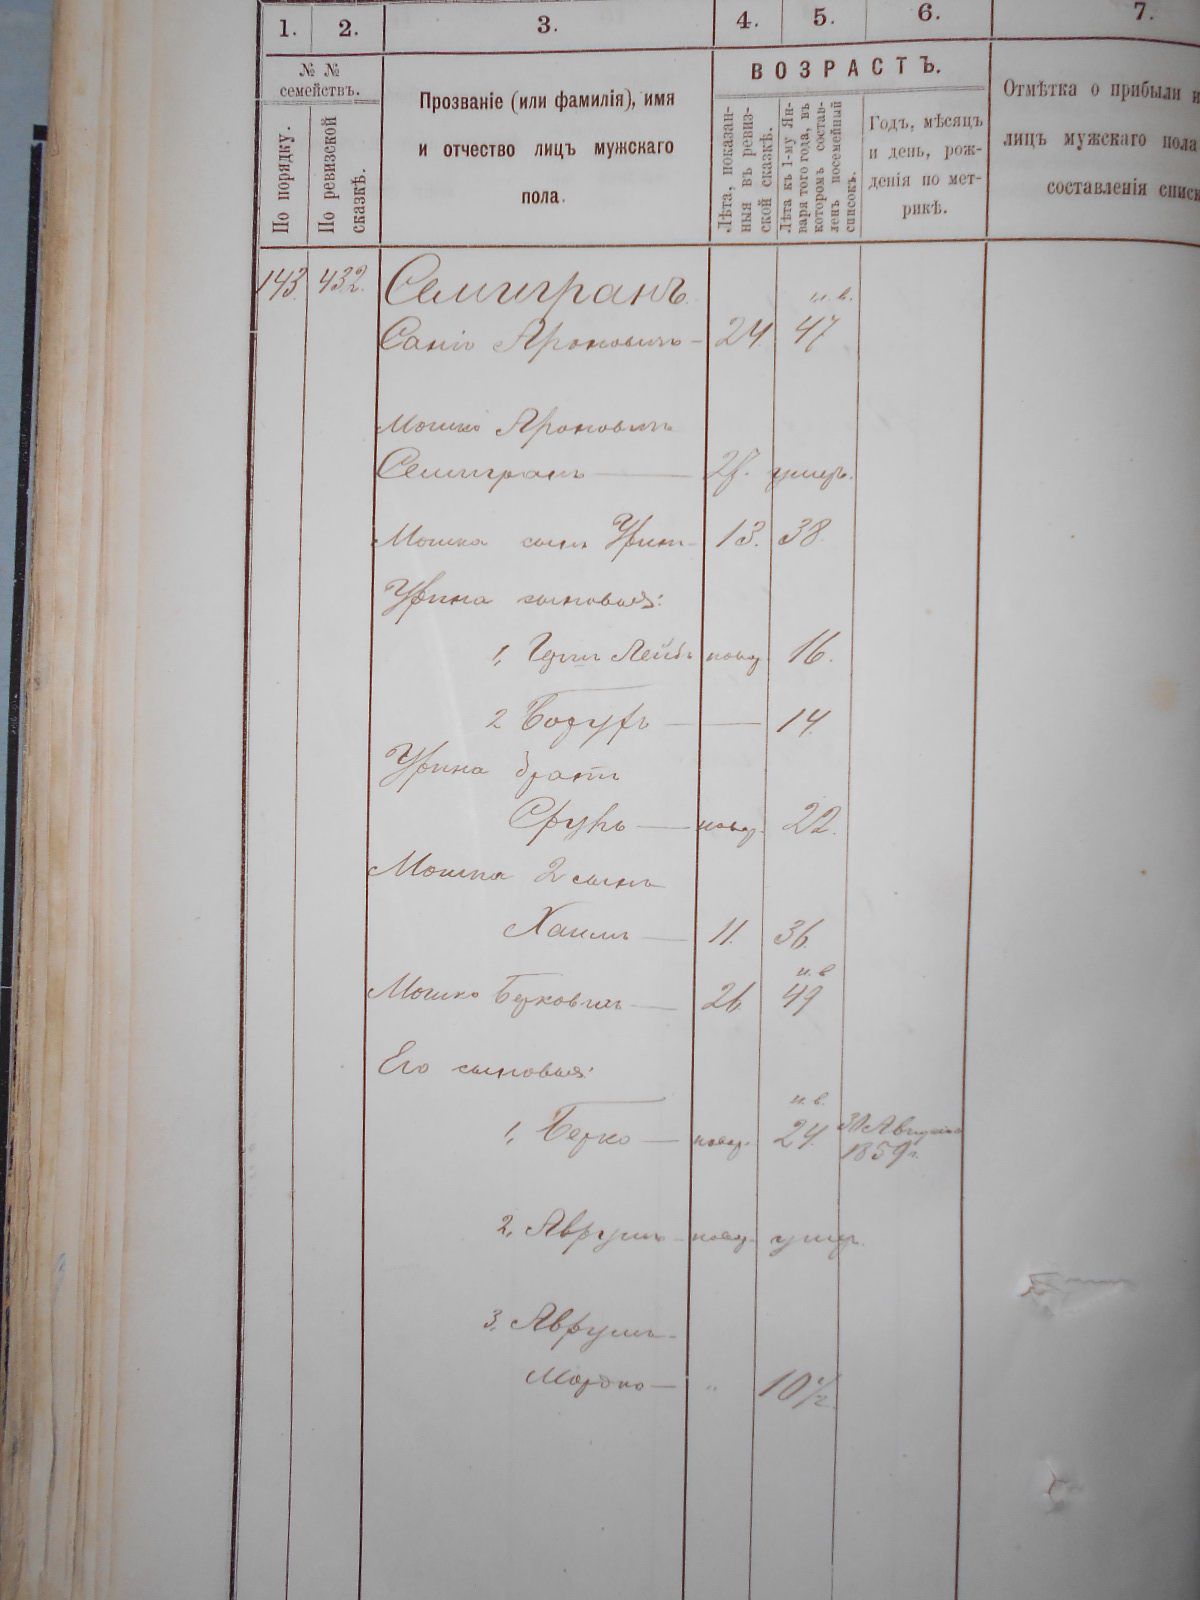 1. 2. 3. 4. 5. 6. 7.
№ №
семействъ.
По порядку.
По ревизской
сказкѣ.
Прозваніе (или фамилія), имя
и отчество лицъ мужскаго
пола.
ВОЗРАСТЪ.
Лѣта, показан-
ныя въ ревиз-
ской сказкѣ.
Лѣта къ 1-му Ян-
варя того года, въ
которомъ состав-
ленъ посемейный
списокъ.
Годъ, мѣсяцъ
и день, рож-
денія по мет-
рикѣ.
Отмѣтка о прибыли и
лицъ мужскаго пола
составленія списк
143. 432. Семигранъ. н.в.
Ароновичъ 24. 47
Мошко Ароновичъ
Семигранъ умеръ.
Мошка сынъ 13. 38.
сыновья:
1, Лейбъ новор. 16.
2 14.
братъ
Сруль новор. 22.
Мошка 2 сынъ
Хаимъ 11. 36.
н.в
Мошко Берковичъ 26. 49
Его сыновья:
н.в.
1, Берко новор. 24. 30 Августа
1859 г.
2, Аврумъ новор. умер.
3, Аврумъ-
Мордко " 10 1/2.